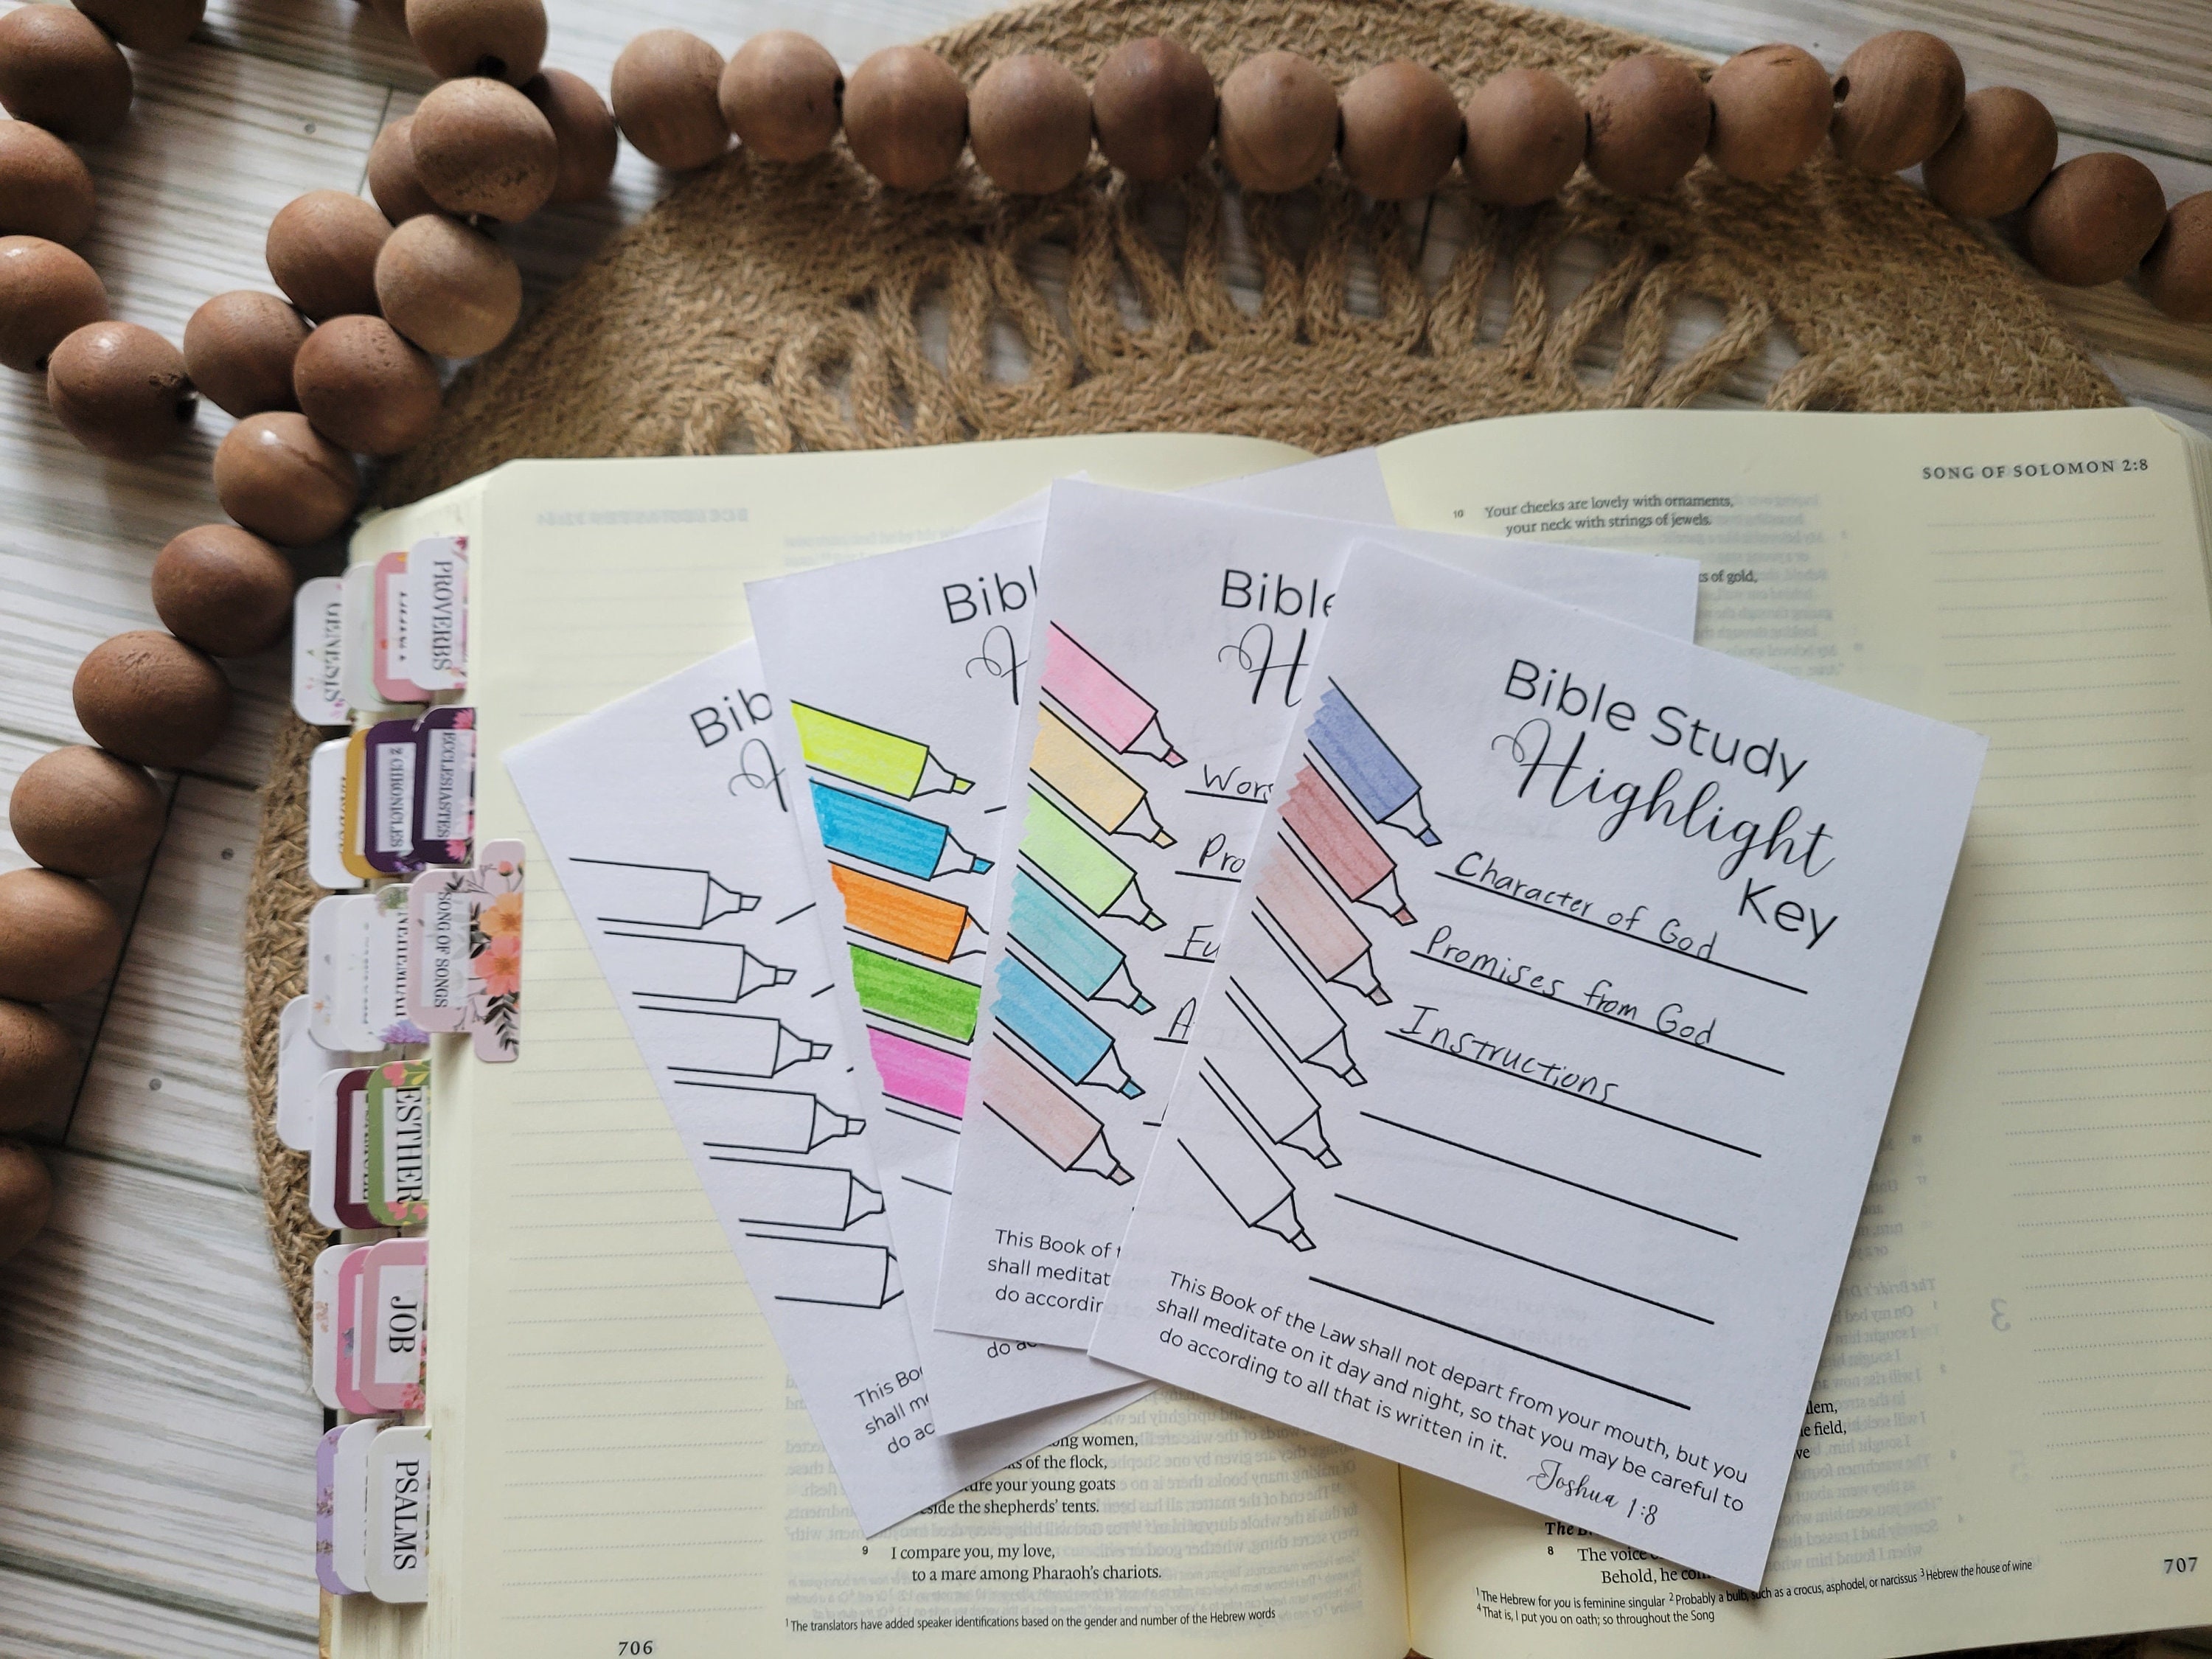 SONG OF SOLOMON 2:8
10 Your cheeks are lovely with ornaments,
your neck with strings of jewels.
of gold,
PROVERBS
GENESIS
ECCLESIASTES
2 CHRONICLES
SONG OF SONGS
NEHEMIAH
ESTHER
JOB
PSALMS
Bib
H
This Boo
shall me
do ac
Bibl
H
do ac
Bible
H
Wors
Pro
Fu
A
This Book of t
shall meditat
do accordin
Bible Study
Highlight
Key
Character of God
Promises from God
Instructions
This Book of the Law shall not depart from your mouth, but you
shall meditate on it day and night, so that you may be careful to
do according to all that is written in it.
Joshua 1:8
ong women,
ks of the flock,
ture your young goats
eside the shepherds' tents.
9 I compare you, my love,
to a mare among Pharaoh's chariots.
1 The translators have added speaker identifications based on the gender and number of the Hebrew words
706
lem,
e field,
ve
The B
8 The voice o
Behold, he com
1 The Hebrew for you is feminine singular 2 Probably a bulb, such as a crocus, asphodel, or narcissus 3 Hebrew the house of wine
4 That is, I put you on oath; so throughout the Song
707